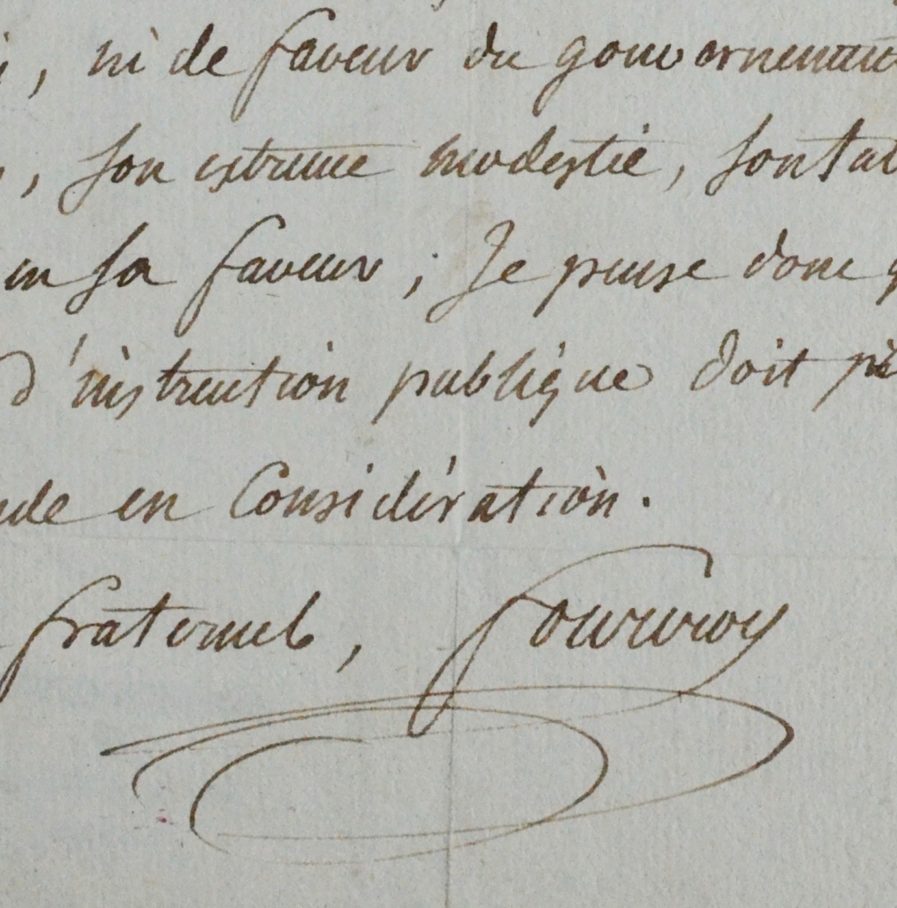 , ni de faveur du gouvernement
, son extreme modestie, son tal
en sa faveur ; Je pense donc q
d'instruction publique doit
de en Considération.
fraternel, Fourcroy